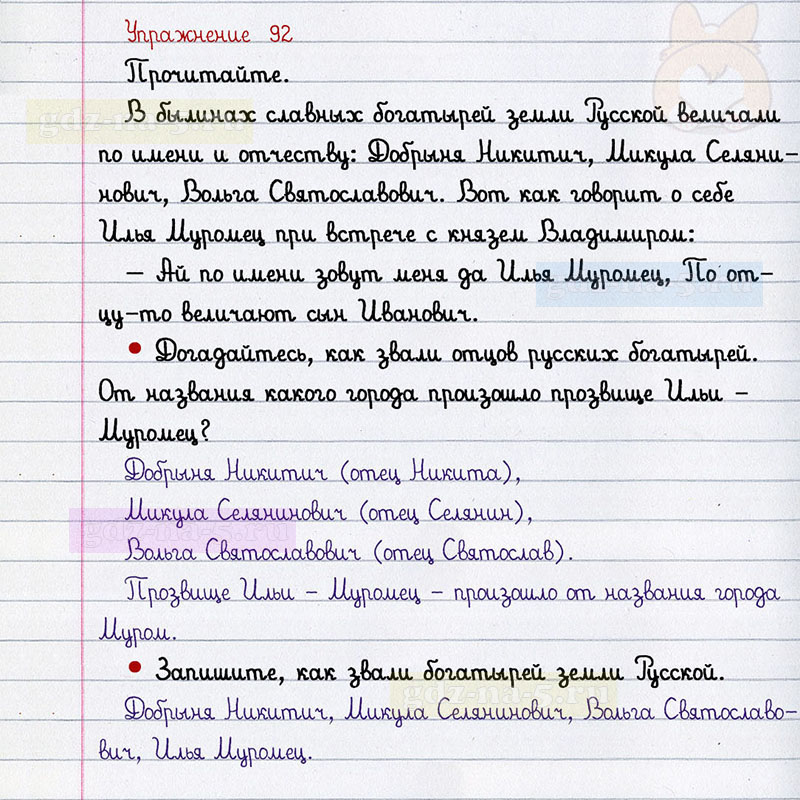 Упражнение 92
Прочитайте.
В былинах славных богатырей земли Русской величали
по имени и отчеству: Добрыня Никитич, Микула Селяни-
нович, Вольга Святославович. Вот как говорит о себе
Илья Муромец при встрече с князем Владимиром:
– Ай по имени зовут меня да Илья Муромец, По от-
цу-то величают сын Иванович.
• Догадайтесь, как звали отцов русских богатырей.
От названия какого города произошло прозвище Ильи –
Муромец?
Добрыня Никитич (отец Никита),
Микула Селянинович (отец Селянин),
Вольга Святославович (отец Святослав).
Прозвище Ильи – Муромец – произошло от названия города
Муром.
• Запишите, как звали богатырей земли Русской.
Добрыня Никитич, Микула Селянинович, Вольга Святославо-
вич, Илья Муромец.